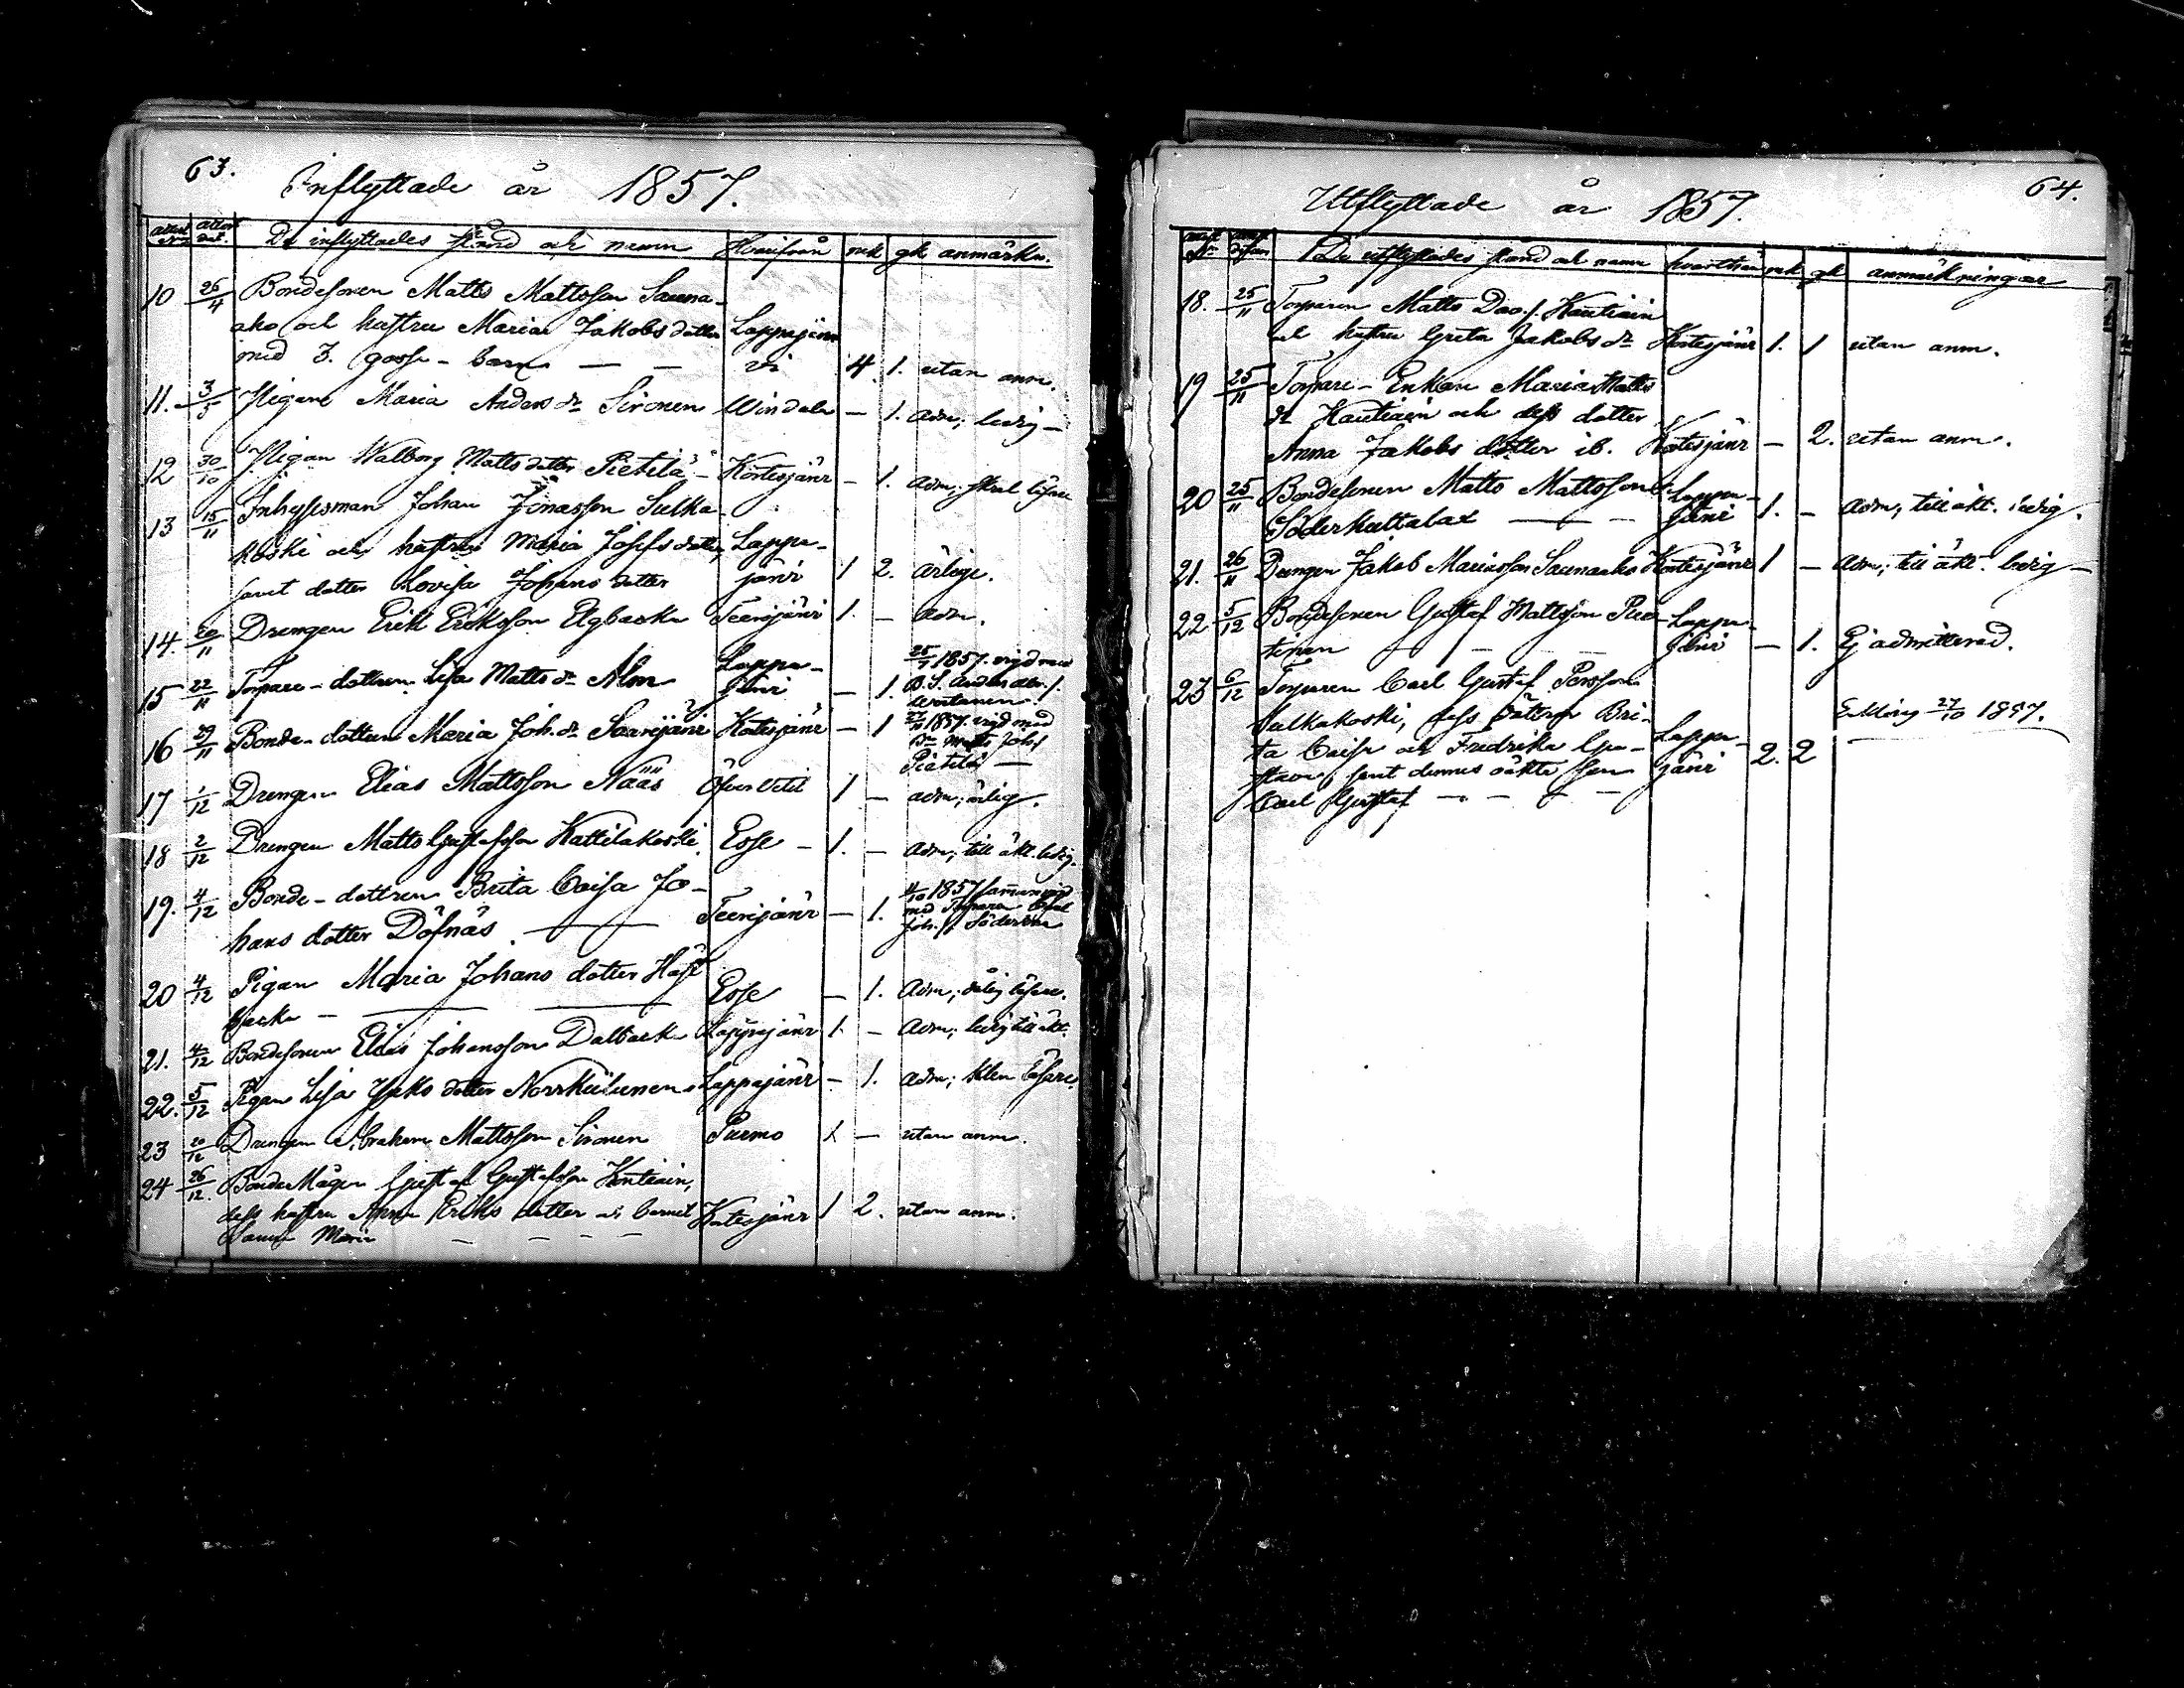 63.
Inflyttade år 1857.
attest N:o attest dat. De inflyttades stånd och namn Hvarifrån mk qk anmärkn.
10 26/4 Bondesonen Matts Mattsson Sauna-
aho och hustru Maria Jakobs dotter Lappajär-
med 3. gosse-barn — — vi 4. 1. utan anm.
11. 3/5 Pigan Maria Anders dr Sironen Windala — 1. adm; ledig —
12 30/10 Pigan Walborg Matts dotter Pietilä — Kortesjärvi — 1. adm; läsare
13 15/11 Inhysesman Johan Jonasson Sulka-
koski och hustru Maria Josefs dotter, Lappa-
samt dotter Lovisa Johans dotter järvi 1 2. ärlige.
14. 20/11 Drengen Erik Eriksson Elgbacka Teerijärvi 1. — adm.
15 22/11 Torpare-dottren Lisa Matts dr Alm Lappa-
järvi — 1. 25/7 1857. vigd med
B. S. Anders
16 29/11 Bonde-dottren Maria Joh. dr Saarijärvi Kortesjärvi — 1 1857. vigd med
Matts Johs
Pietilä —
17 1/12 Drengen Elias Mattsson Nääs Öfver Vetil 1 — adm; ärlig.
18 2/12 Drengen Matts Gustafsson Kattilakoski Esse — 1. — adm; till äkt. ledig.
19. 4/12 Bonde-dottren Brita Caisa Jo-
hans dotter Döfnäs — Teerijärvi — 1. 4/10 1857 sammanvigd
med Torparen
Joh.s.
20 4/12 Pigan Maria Johans dotter Häst
backa — — — Esse — 1. adm; dålig läsare.
21. 4/12 Bondesonen Elias Johansson Dalback Lappajärvi 1. — adm; ledig till äkt.
22. 5/12 Pigan Lisa Jakobs dotter Norrkulunen Lappajärvi — 1. adm; klen läsare
23 20/12 Drengen Abraham Mattsson Sironen Purmo 1 — utan anm.
24 26/12. Bonde Mågen Gustaf Gustafsson Kontiain,
dess hustru Anna Eriks dotter barnet Kortesjärvi 1 2. utan anm.
Sanna Maria — — — —
64.
Utflyttade år 1857.
N:o De utflyttades stånd och namn hvarthän mk qk anmärkningar
18. 25/11 Torparen Matts Dav.s. Kautiain
och hustru Greta Jakobs dr Kortesjärvi 1. 1 utan anm.
19 25/11 Torpare-Enkan Maria Matts
dr Kautiain och dess dotter
Anna Jakobs dotter ib. Kortesjärvi — 2. utan anm.
20 25/11 Bondesonen Matts Mattsson Lappa-
Söderkultalax — — järvi 1. — adm; till äkt. ledig.
21. 26/11 Drengen Jakob Mariasson Saunaaho Kortesjärvi 1 — adm; till äkt. ledig —
22 5/12 Bondesonen Gustaf Mattsson Pus- Lappa-
tinen — — — järvi — 1. Ej admitterad.
23 6/12 Torparen Carl Gustaf Persson
Sulkakoski, dess döttrar Bri- 27/10 1857.
ta Caisa och Fredrika Gu- Lappa-
stava, samt dennes oäkta son järvi 2. 2
Carl Gustaf — — — —